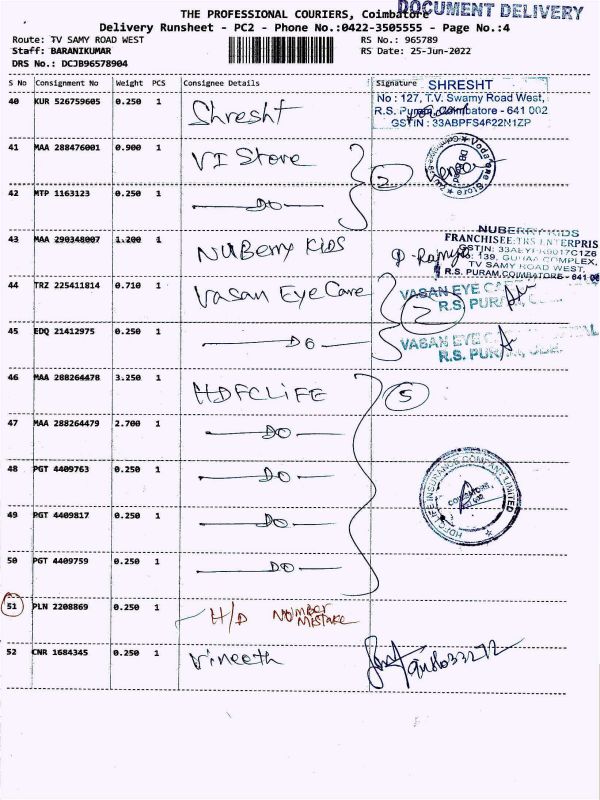 DOCUMENT DELIVERY
THE PROFESSIONAL COURIERS, Coimbatore
Delivery Runsheet - PC2 - Phone No.:0422-3505555 - Page No.:4
Route: TV SAMY ROAD WEST RS No.: 965789
Staff: BARANIKUMAR RS Date: 25-Jun-2022
DRS No.: DCJB96578904
S No Consignment No Weight PCS Consignee Details Signature
40 KUR 526759605 0.250 1 Shresht
SHRESHT
No : 127, T.V. Swamy Road West,
R.S. Puram, Coimbatore - 641 002
GSTIN : 33ABPFS4622N1ZP
41 MAA 288476001 0.900 1 VI Store
2
Vodafone Store
42 MTP 1163123 0.250 1 DO
43 MAA 290348007 1.200 1 NUBerry KIDS
NUBERRY KIDS
FRANCHISEE:TRS ENTERPRIS
139,
COMPLEX,
TV SAMY ROAD WEST,
R.S. PURAM,COIMBATORE - 641 00
44 TRZ 225411814 0.710 1 Vasan Eye Care
2
VASAN EYE CA
R.S. PUR
45 EDQ 21412975 0.250 1 DO
VASAN EYE C TAL
R.S. PUR
46 MAA 288264478 3.250 1 HDFCLIFE
5
47 MAA 288264479 2.700 1 DO
48 PGT 4409763 0.250 1 DO
HDFC LIFE INSURANCE COMPANY LIMITED
49 PGT 4409817 0.250 1 DO
50 PGT 4409759 0.250 1 DO
51 PLN 2208869 0.250 1 H/D NUMBER
MISTAKE
52 CNR 1684345 0.250 1 Vineeth